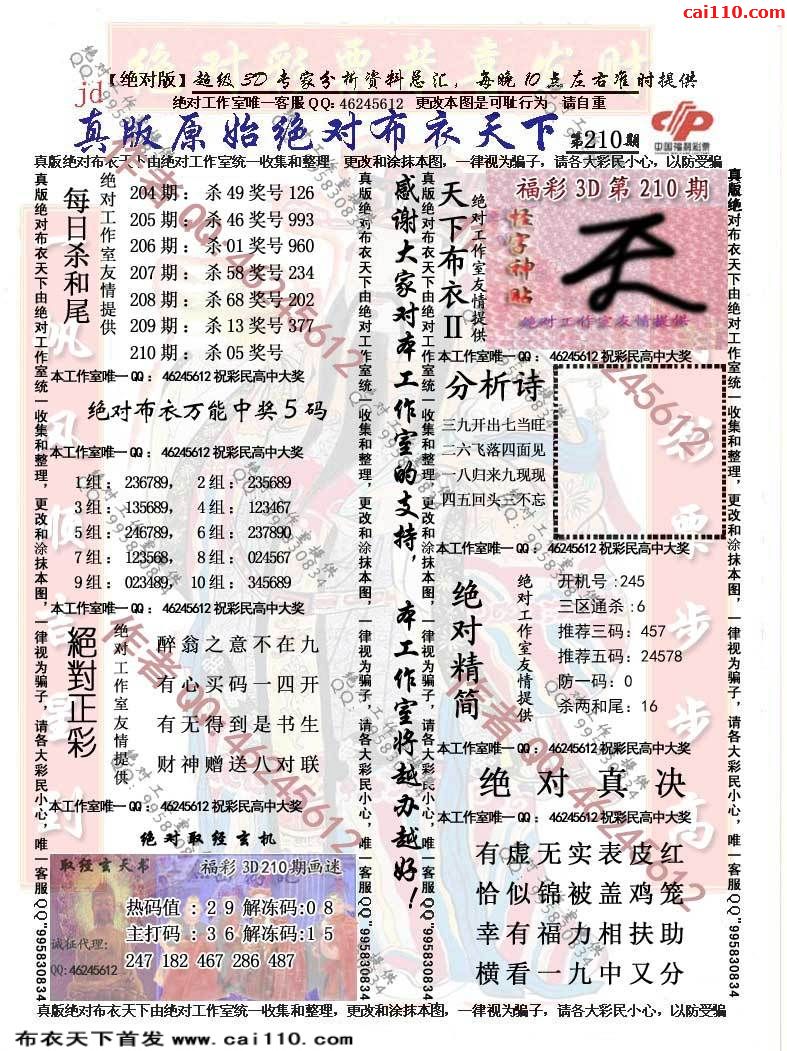 cai110.com
绝对彩票恭喜发财
【绝对版】超级3D专家分析资料总汇，每晚10点左右准时提供
jd
绝对工作室唯一客服QQ:46245612 更改本图是可耻行为 请自重
真版原始绝对布衣天下 第210期
中国福利彩票
真版绝对布衣天下由绝对工作室统一收集和整理，更改和涂抹本图，一律视为骗子，请各大彩民小心，以防受骗
真版绝对布衣天下由绝对工作室统一收集和整理，更改和涂抹本图，一律视为骗子，请各大彩民小心，唯一客服QQ"995830834
每日杀和尾
绝对工作室友情提供
204期：杀49奖号126
205期：杀46奖号993
206期：杀01奖号960
207期：杀58奖号234
208期：杀68奖号202
209期：杀13奖号377
210期：杀05奖号
本工作室唯一QQ：46245612祝彩民高中大奖
绝对布衣万能中奖5码
本工作室唯一QQ：46245612祝彩民高中大奖
1组：236789， 2组：235689
3组：135689， 4组：123467
5组：246789， 6组：237890
7组：123568， 8组：024567
9组：023489， 10组：345689
本工作室唯一QQ：46245612祝彩民高中大奖
絕對正彩
绝对工作室友情提供
醉翁之意不在九
有心买码一四开
有无得到是书生
财神赠送八对联
本工作室唯一QQ：46245612祝彩民高中大奖
绝对取经玄机
取经玄天书
福彩3D210期画迷
热码值：29解冻码:08
主打码：36解冻码:15
247 182 467 286 487
诚征代理:
QQ:46245612
真版绝对布衣天下由绝对工作室统一收集和整理，更改和涂抹本图，一律视为骗子，请各大彩民小心，唯一客服QQ"995830834
感谢大家对本工作室的支持，本工作室将越办越好！
真版绝对布衣天下由绝对工作室统一收集和整理，更改和涂抹本图，一律视为骗子，请各大彩民小心，唯一客服QQ"995830834
天下布衣II
绝对工作室友情提供
福彩3D第210期
怪字神贴
绝对工作室友情提供
本工作室唯一QQ：46245612祝彩民高中大奖
分析诗
三九开出七当旺
二六飞落四面见
一八归来九现现
四五回头三不忘
本工作室唯一QQ：46245612祝彩民高中大奖
绝对精简
绝对工作室友情提供
开机号:245
三区通杀:6
推荐三码:457
推荐五码:24578
防一码:0
杀两和尾:16
本工作室唯一QQ：46245612祝彩民高中大奖
绝对真决
本工作室唯一QQ：46245612祝彩民高中大奖
有虚无实表皮红
恰似锦被盖鸡笼
幸有福力相扶助
横看一九中又分
真版绝对布衣天下由绝对工作室统一收集和整理，更改和涂抹本图，一律视为骗子，请各大彩民小心，唯一客服QQ"995830834
真版绝对布衣天下由绝对工作室统一收集和整理，更改和涂抹本图，一律视为骗子，请各大彩民小心，以防受骗
作者QQ:46245612
布衣天下首发 www.cai110.com